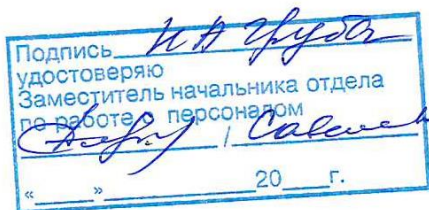 Подпись Н А Груба
удостоверяю
Заместитель начальника отдела
по работе с персоналом
/
« » 20 г.